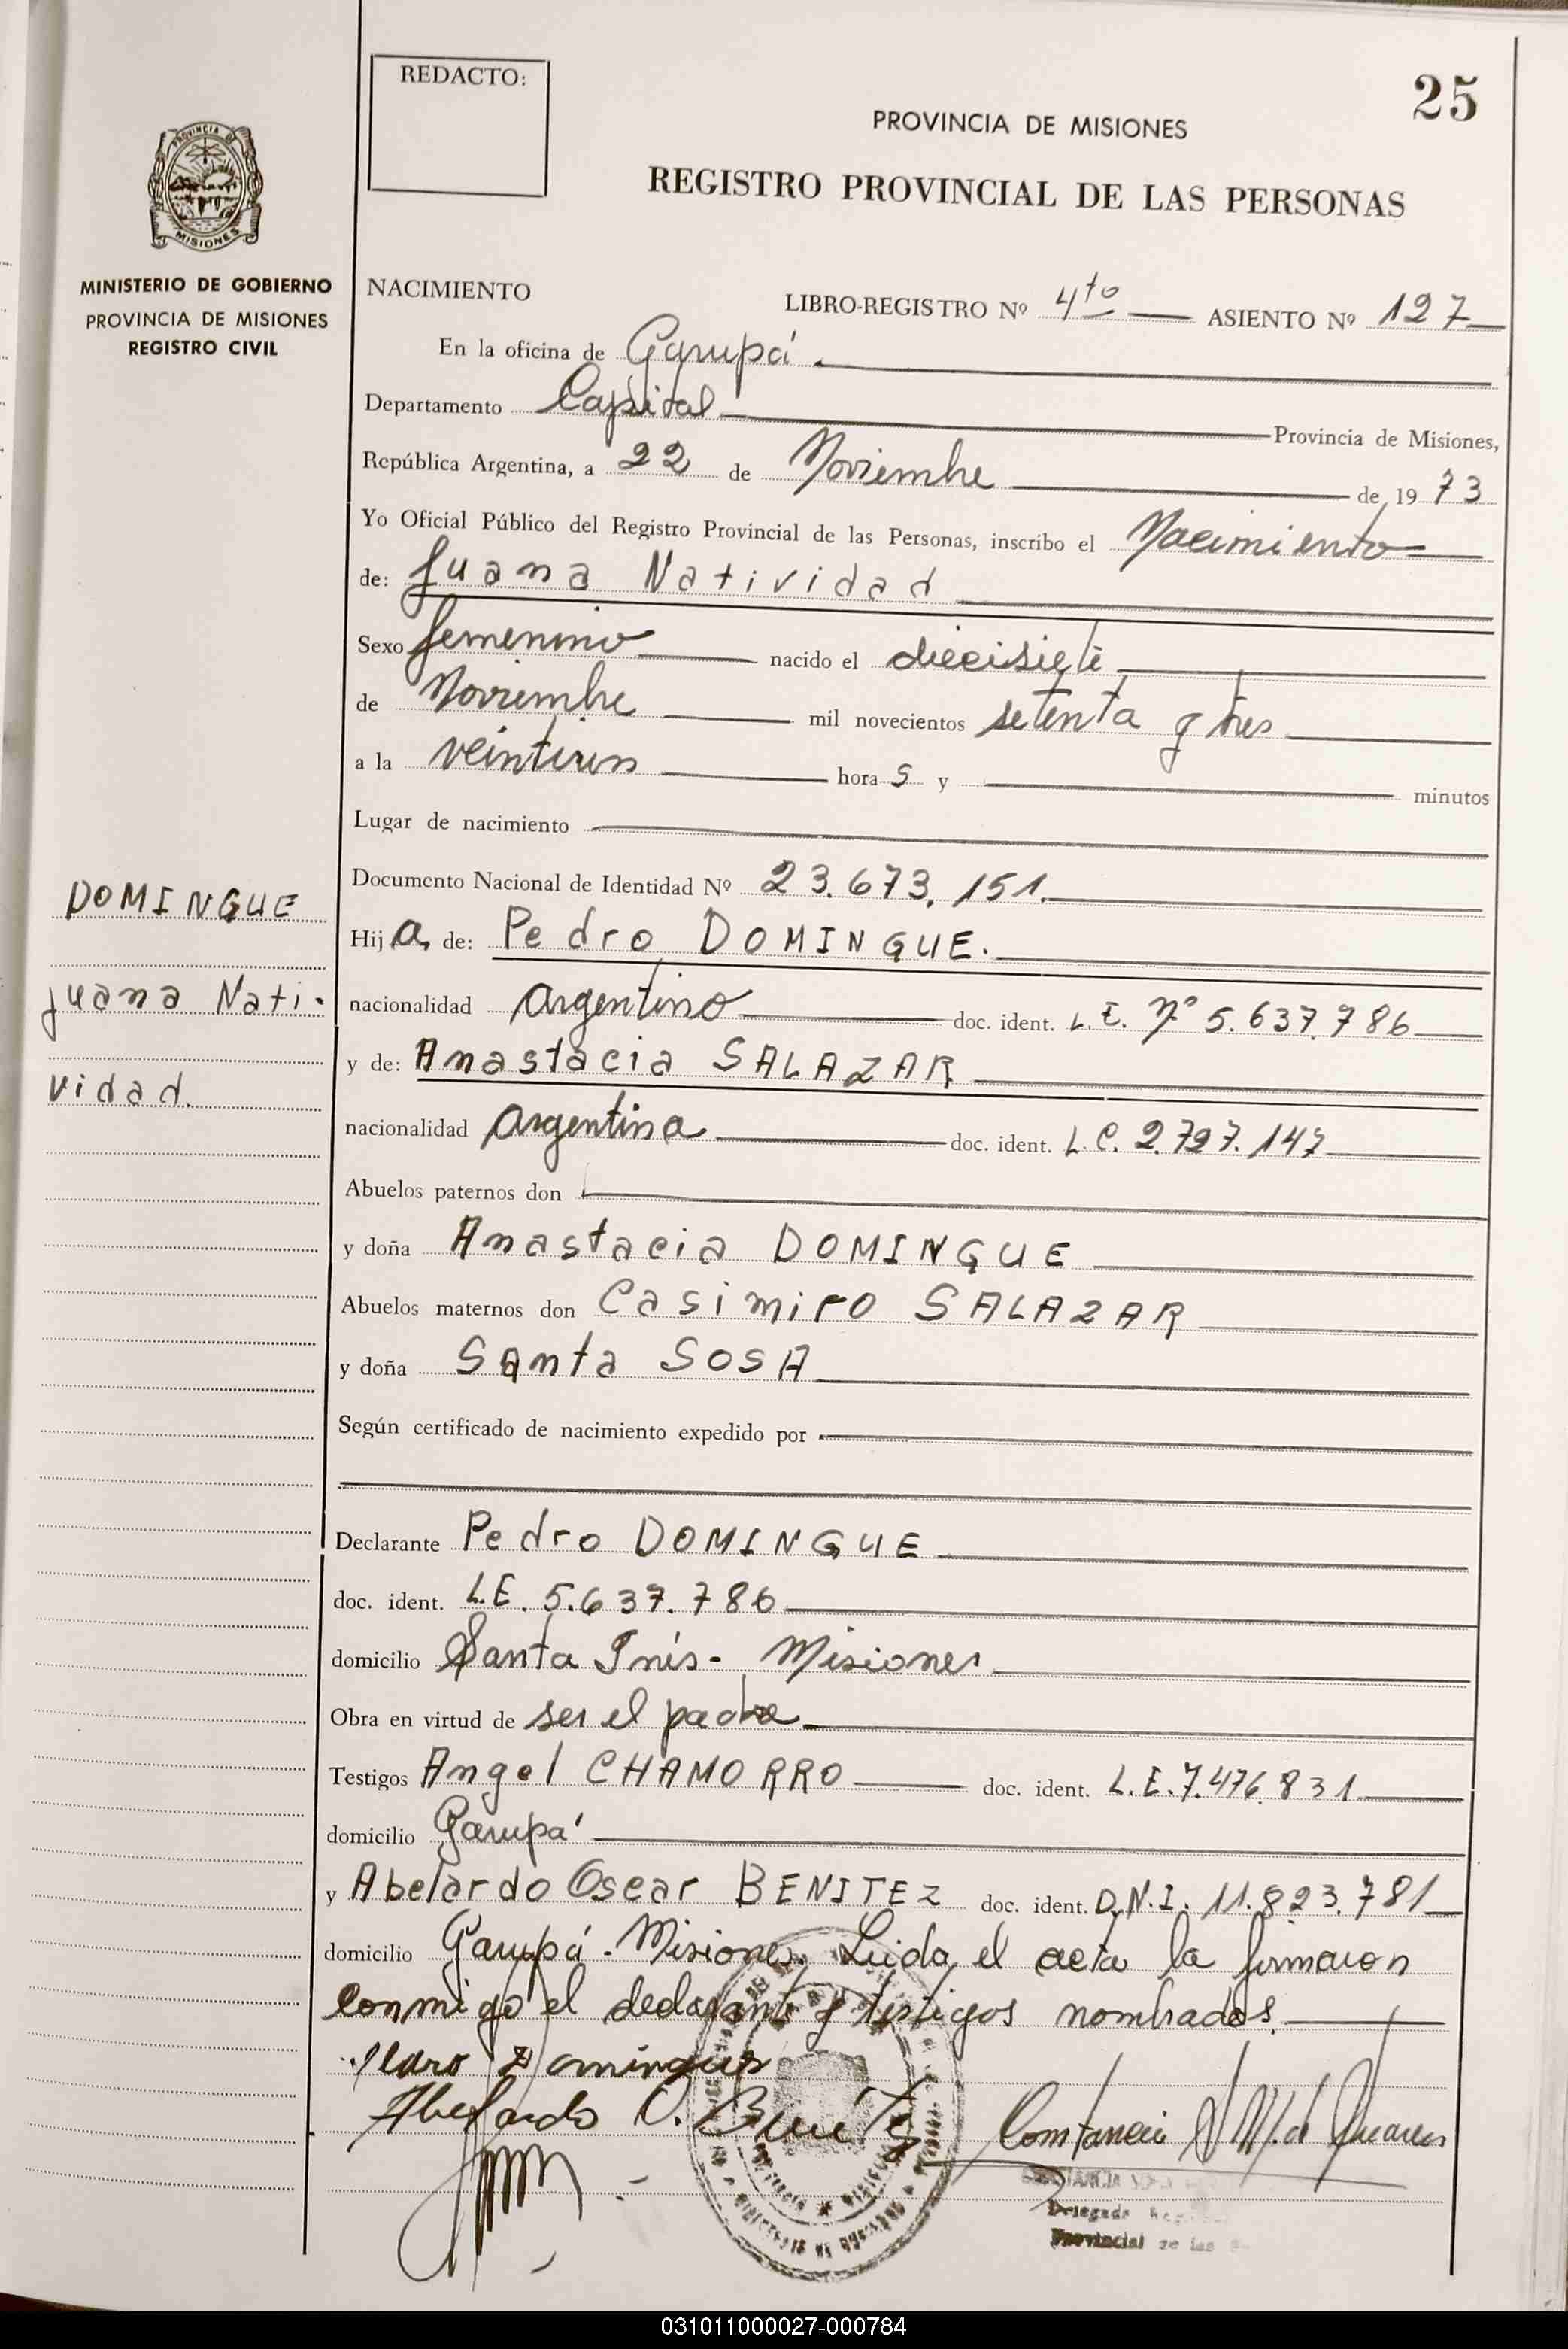 25
REDACTO:
PROVINCIA DE MISIONES
REGISTRO PROVINCIAL DE LAS PERSONAS
PROVINCIA DE
MISIONES
MINISTERIO DE GOBIERNO
PROVINCIA DE MISIONES
REGISTRO CIVIL
NACIMIENTO LIBRO-REGISTRO Nº 4to ASIENTO Nº 127
En la oficina de Garupá.
Departamento Capital Provincia de Misiones,
República Argentina, a 22 de Noviembre de 1973
Yo Oficial Público del Registro Provincial de las Personas, inscribo el Nacimiento
de: Juana Natividad
Sexo femenino nacido el diecisiete
de Noviembre mil novecientos setenta y tres
a la veintiun horas y minutos
Lugar de nacimiento
Documento Nacional de Identidad Nº 23.673.151.
DOMINGUE
Hija de: Pedro DOMINGUE.
Juana Nati-
nacionalidad argentino doc. ident. L.E. Nº 5.637.786
y de: Anastacia SALAZAR
vidad.
nacionalidad argentina doc. ident. L.C. 2.727.147
Abuelos paternos don
y doña Anastacia DOMINGUE
Abuelos maternos don Casimiro SALAZAR
y doña Santa SOSA
Según certificado de nacimiento expedido por
Declarante Pedro DOMINGUE
doc. ident. L.E. 5.637.786
domicilio Santa Inés - Misiones
Obra en virtud de ser el padre
Testigos Angel CHAMORRO doc. ident. L.E. 7.476.831
domicilio Garupá
y Abelardo Oscar BENITEZ doc. ident. D.N.I. 11.823.781
domicilio Garupá - Misiones. Leida el acta la firmaron
conmigo el declarante y testigos nombrados.
Domingue
Abelardo O. Benítez
Delegada
Provincial de las
031011000027-000784